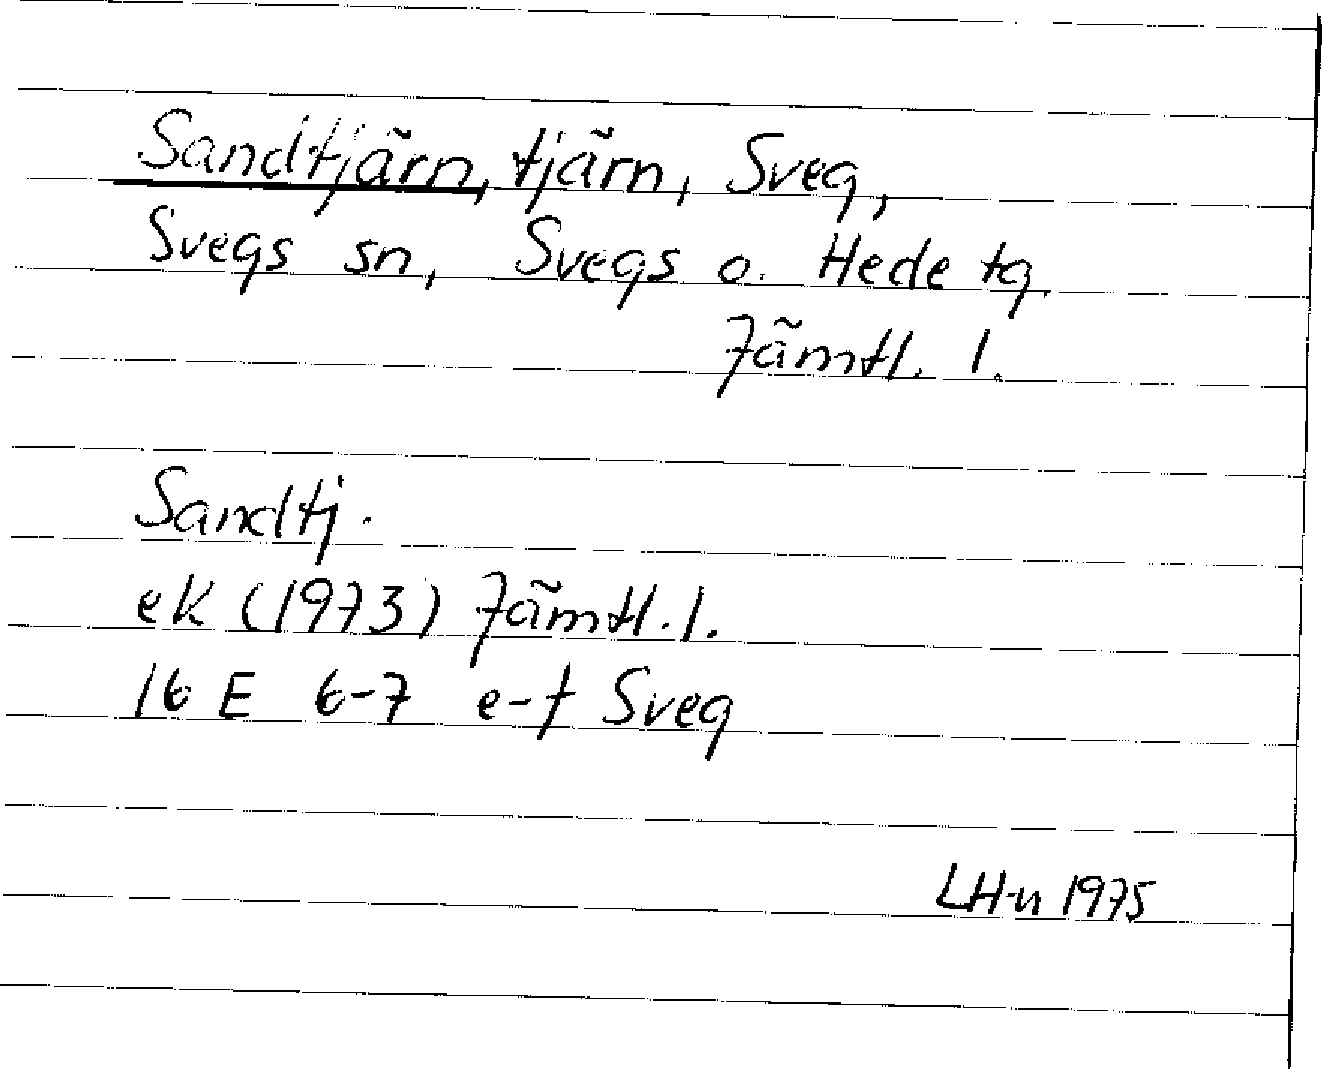 Sandtjärn, tjärn, Sveg,
Svegs sn, Svegs o. Hede tg
Jämtl. l.
Sandtj.
ek (1973) Jämtl. l.
16 E 6-7 e-f Sveg
LH-n 1975